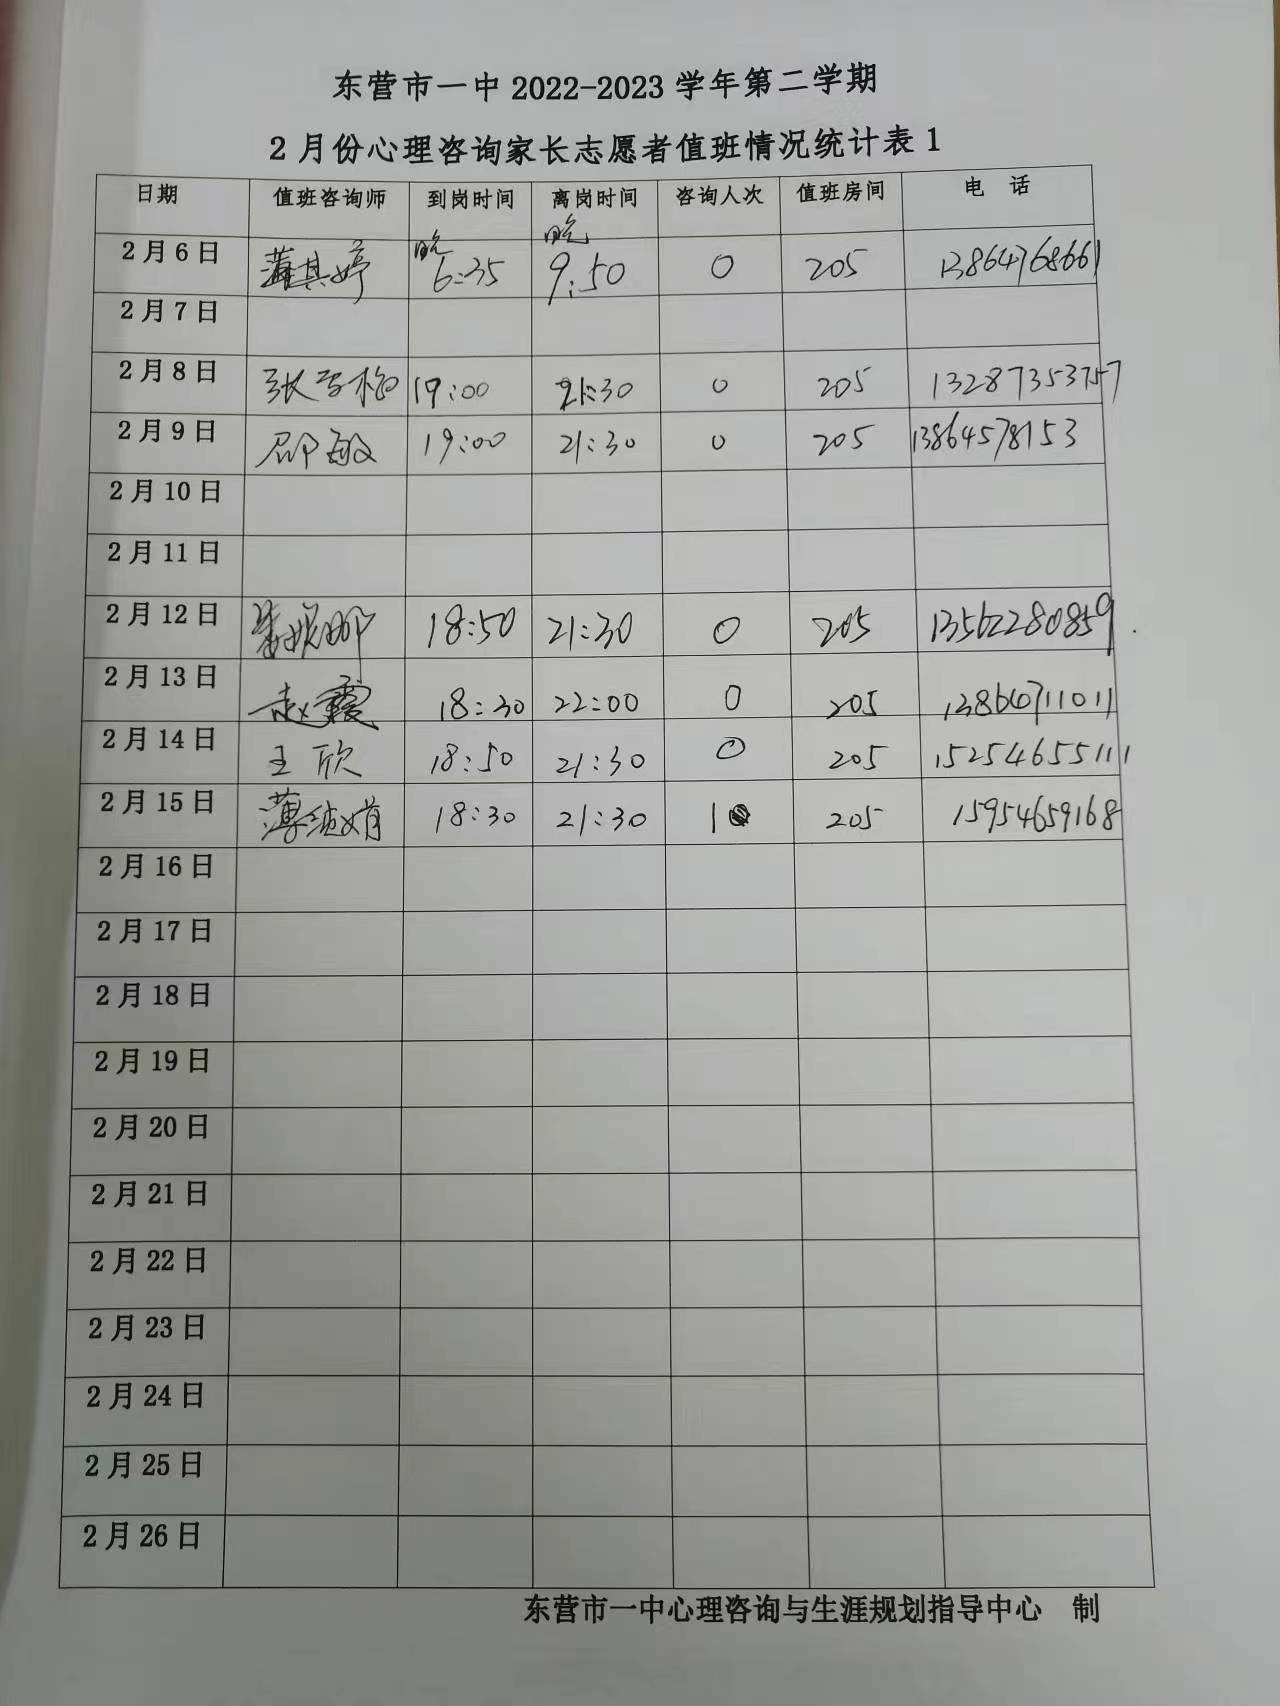 东营市一中 2022-2023 学年第二学期
2 月份心理咨询家长志愿者值班情况统计表 1
日期 值班咨询师 到岗时间 离岗时间 咨询人次 值班房间 电 话
2 月 6 日 其婷 晚 6:35 晚 9:50 0 205 13864768661
2 月 7 日
2 月 8 日 张 梅 19:00 21:30 0 205 13287353757
2 月 9 日 邵敏 19:00 21:30 0 205 13864578153
2 月 10 日
2 月 11 日
2 月 12 日 娜 18:50 21:30 0 205 13562280859
2 月 13 日 赵霞 18:30 22:00 0 205 13864711011
2 月 14 日 王欣 18:50 21:30 0 205 15254655111
2 月 15 日 薄 娟 18:30 21:30 1 205 15954659168
2 月 16 日
2 月 17 日
2 月 18 日
2 月 19 日
2 月 20 日
2 月 21 日
2 月 22 日
2 月 23 日
2 月 24 日
2 月 25 日
2 月 26 日
东营市一中心理咨询与生涯规划指导中心 制